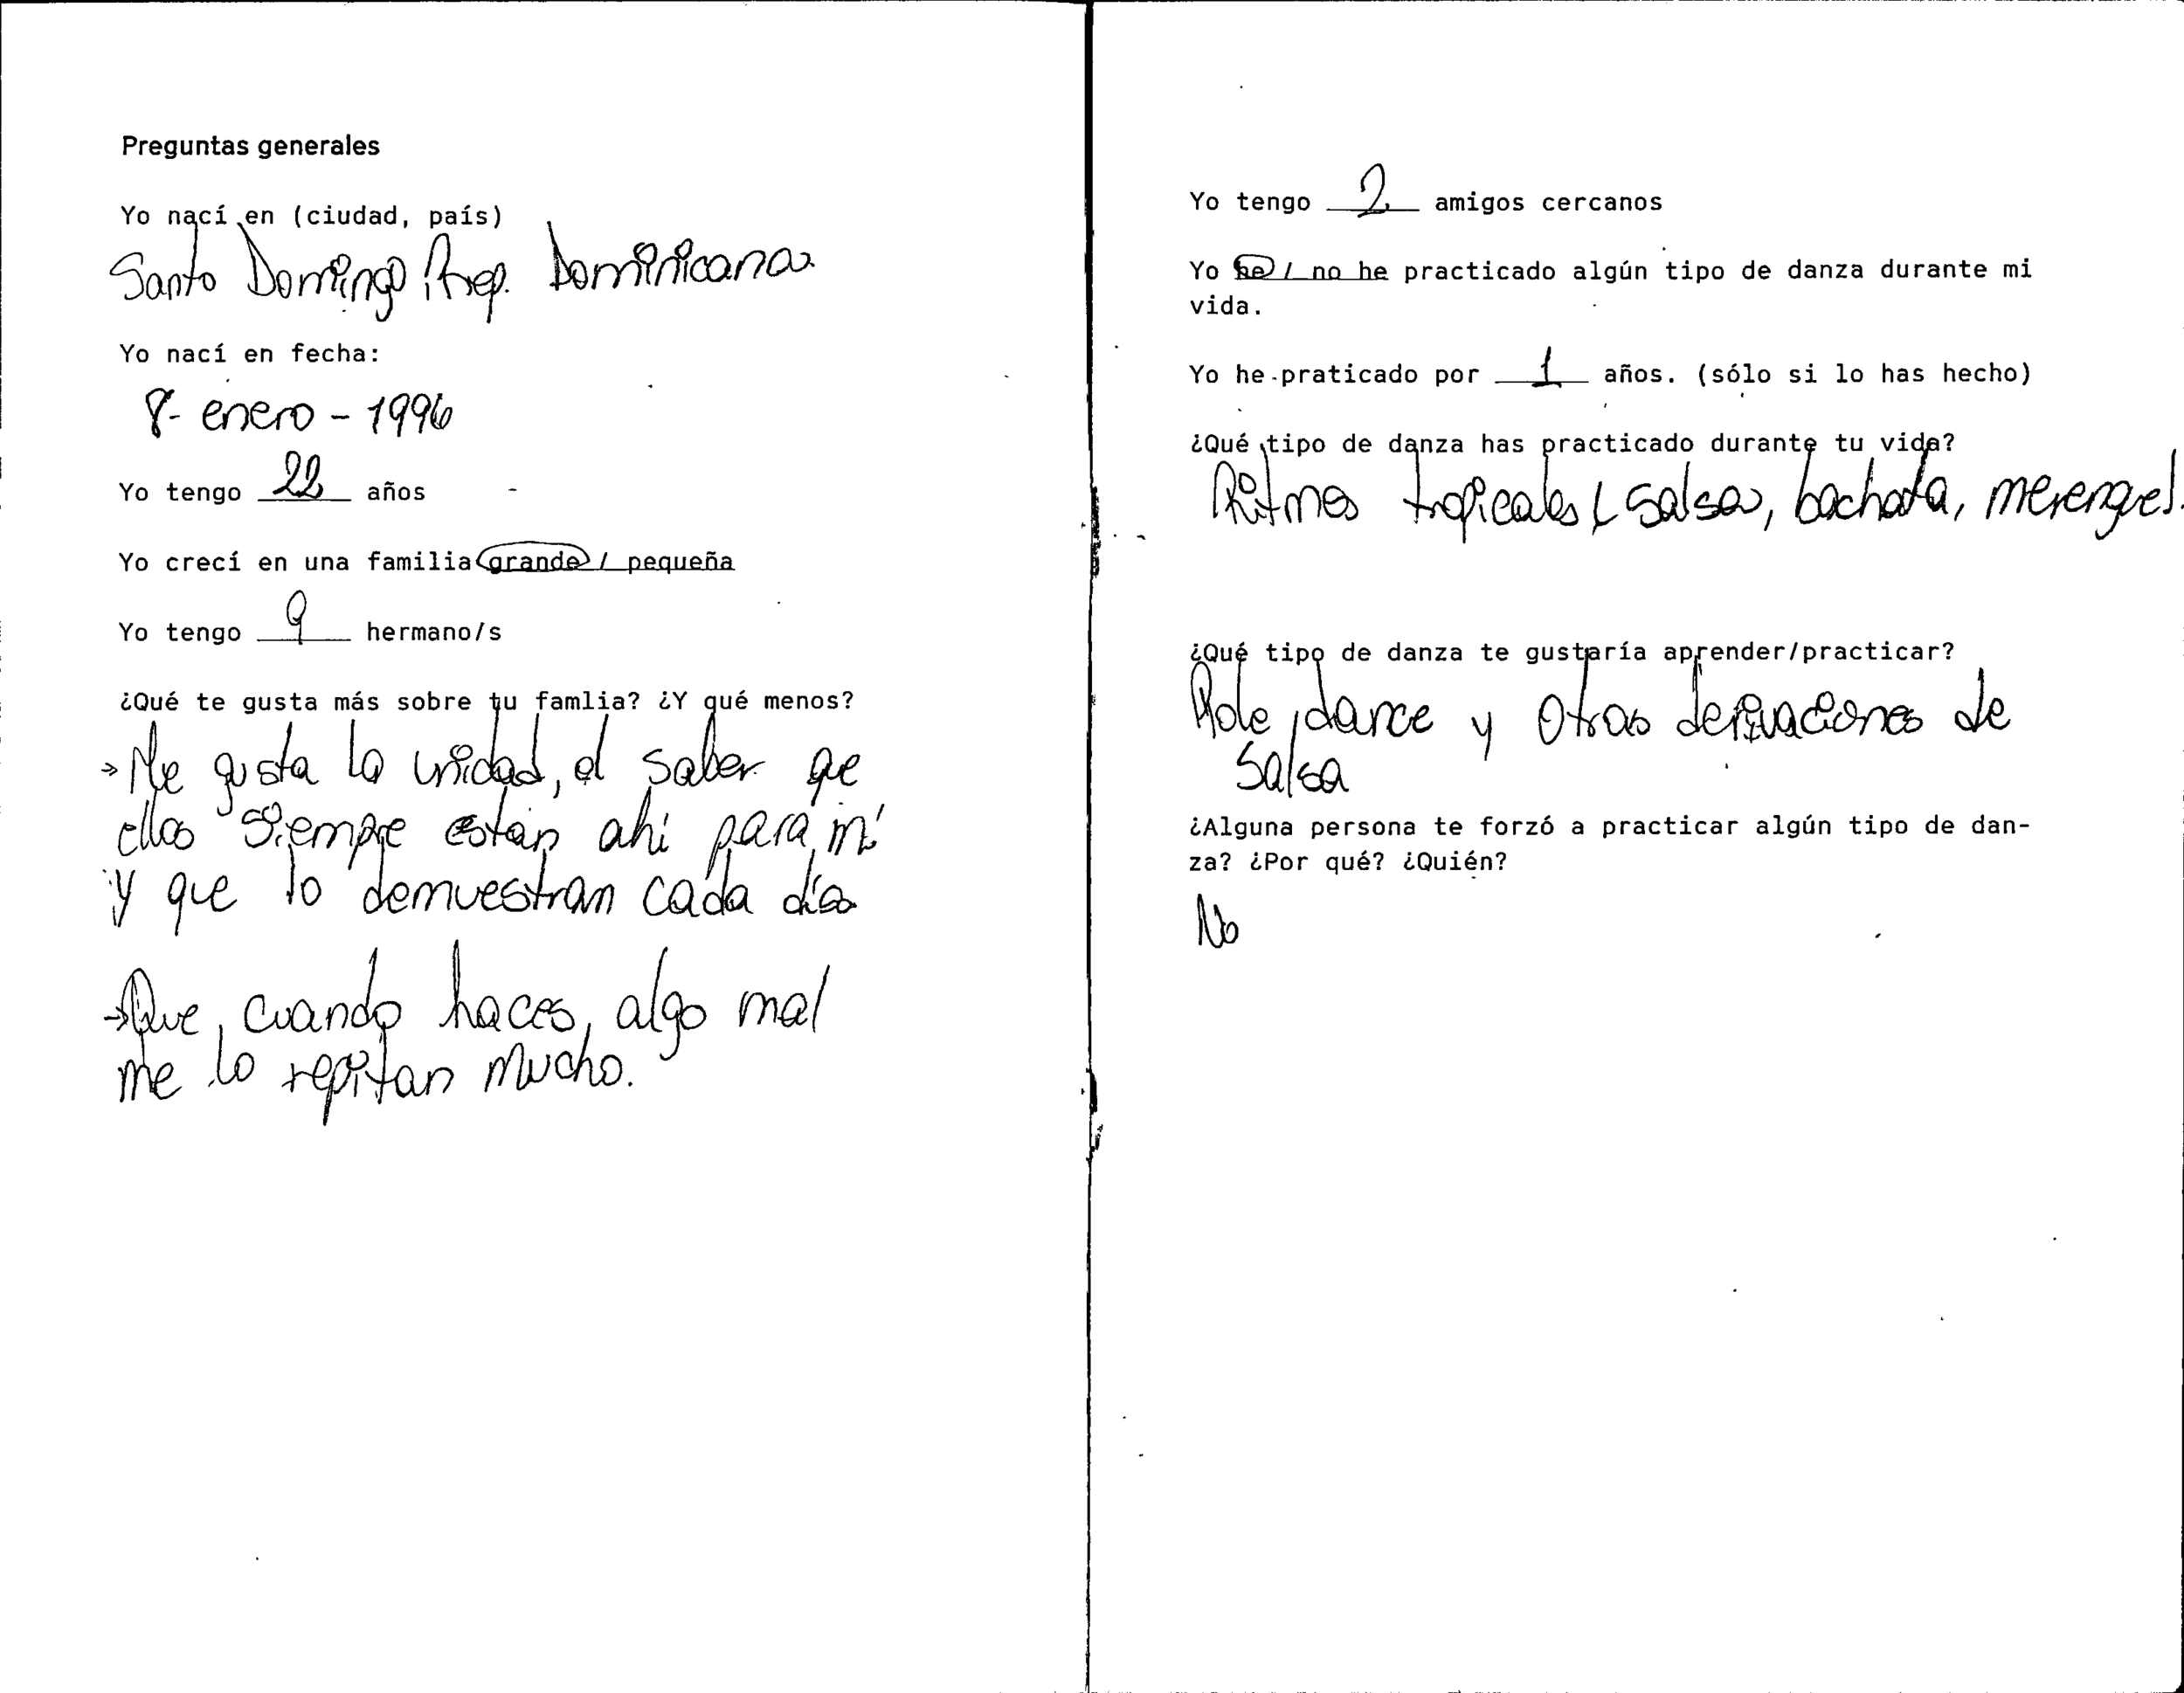 Preguntas generales
Yo nací en (ciudad, país)
Santo Domingo, Rep. Dominicana
Yo nací en fecha:
8- enero - 1996
Yo tengo 22 años
Yo crecí en una familia grande / pequeña
Yo tengo 9 hermano/s
¿Qué te gusta más sobre tu famlia? ¿Y qué menos?
→ Me gusta la unidad, el saber que
ellos siempre estan ahí para mí
y que lo demuestran cada día
→ Que, cuando haces, algo mal
me lo repitan mucho.
Yo tengo 2 amigos cercanos
Yo he / no he practicado algún tipo de danza durante mi
vida.
Yo he praticado por 1 años. (sólo si lo has hecho)
¿Qué tipo de danza has practicado durante tu vida?
Ritmos tropicales (salsa, bachata, merengue).
¿Qué tipo de danza te gustaría aprender/practicar?
Pole dance y otras derivaciones de
salsa
¿Alguna persona te forzó a practicar algún tipo de dan-
za? ¿Por qué? ¿Quién?
No